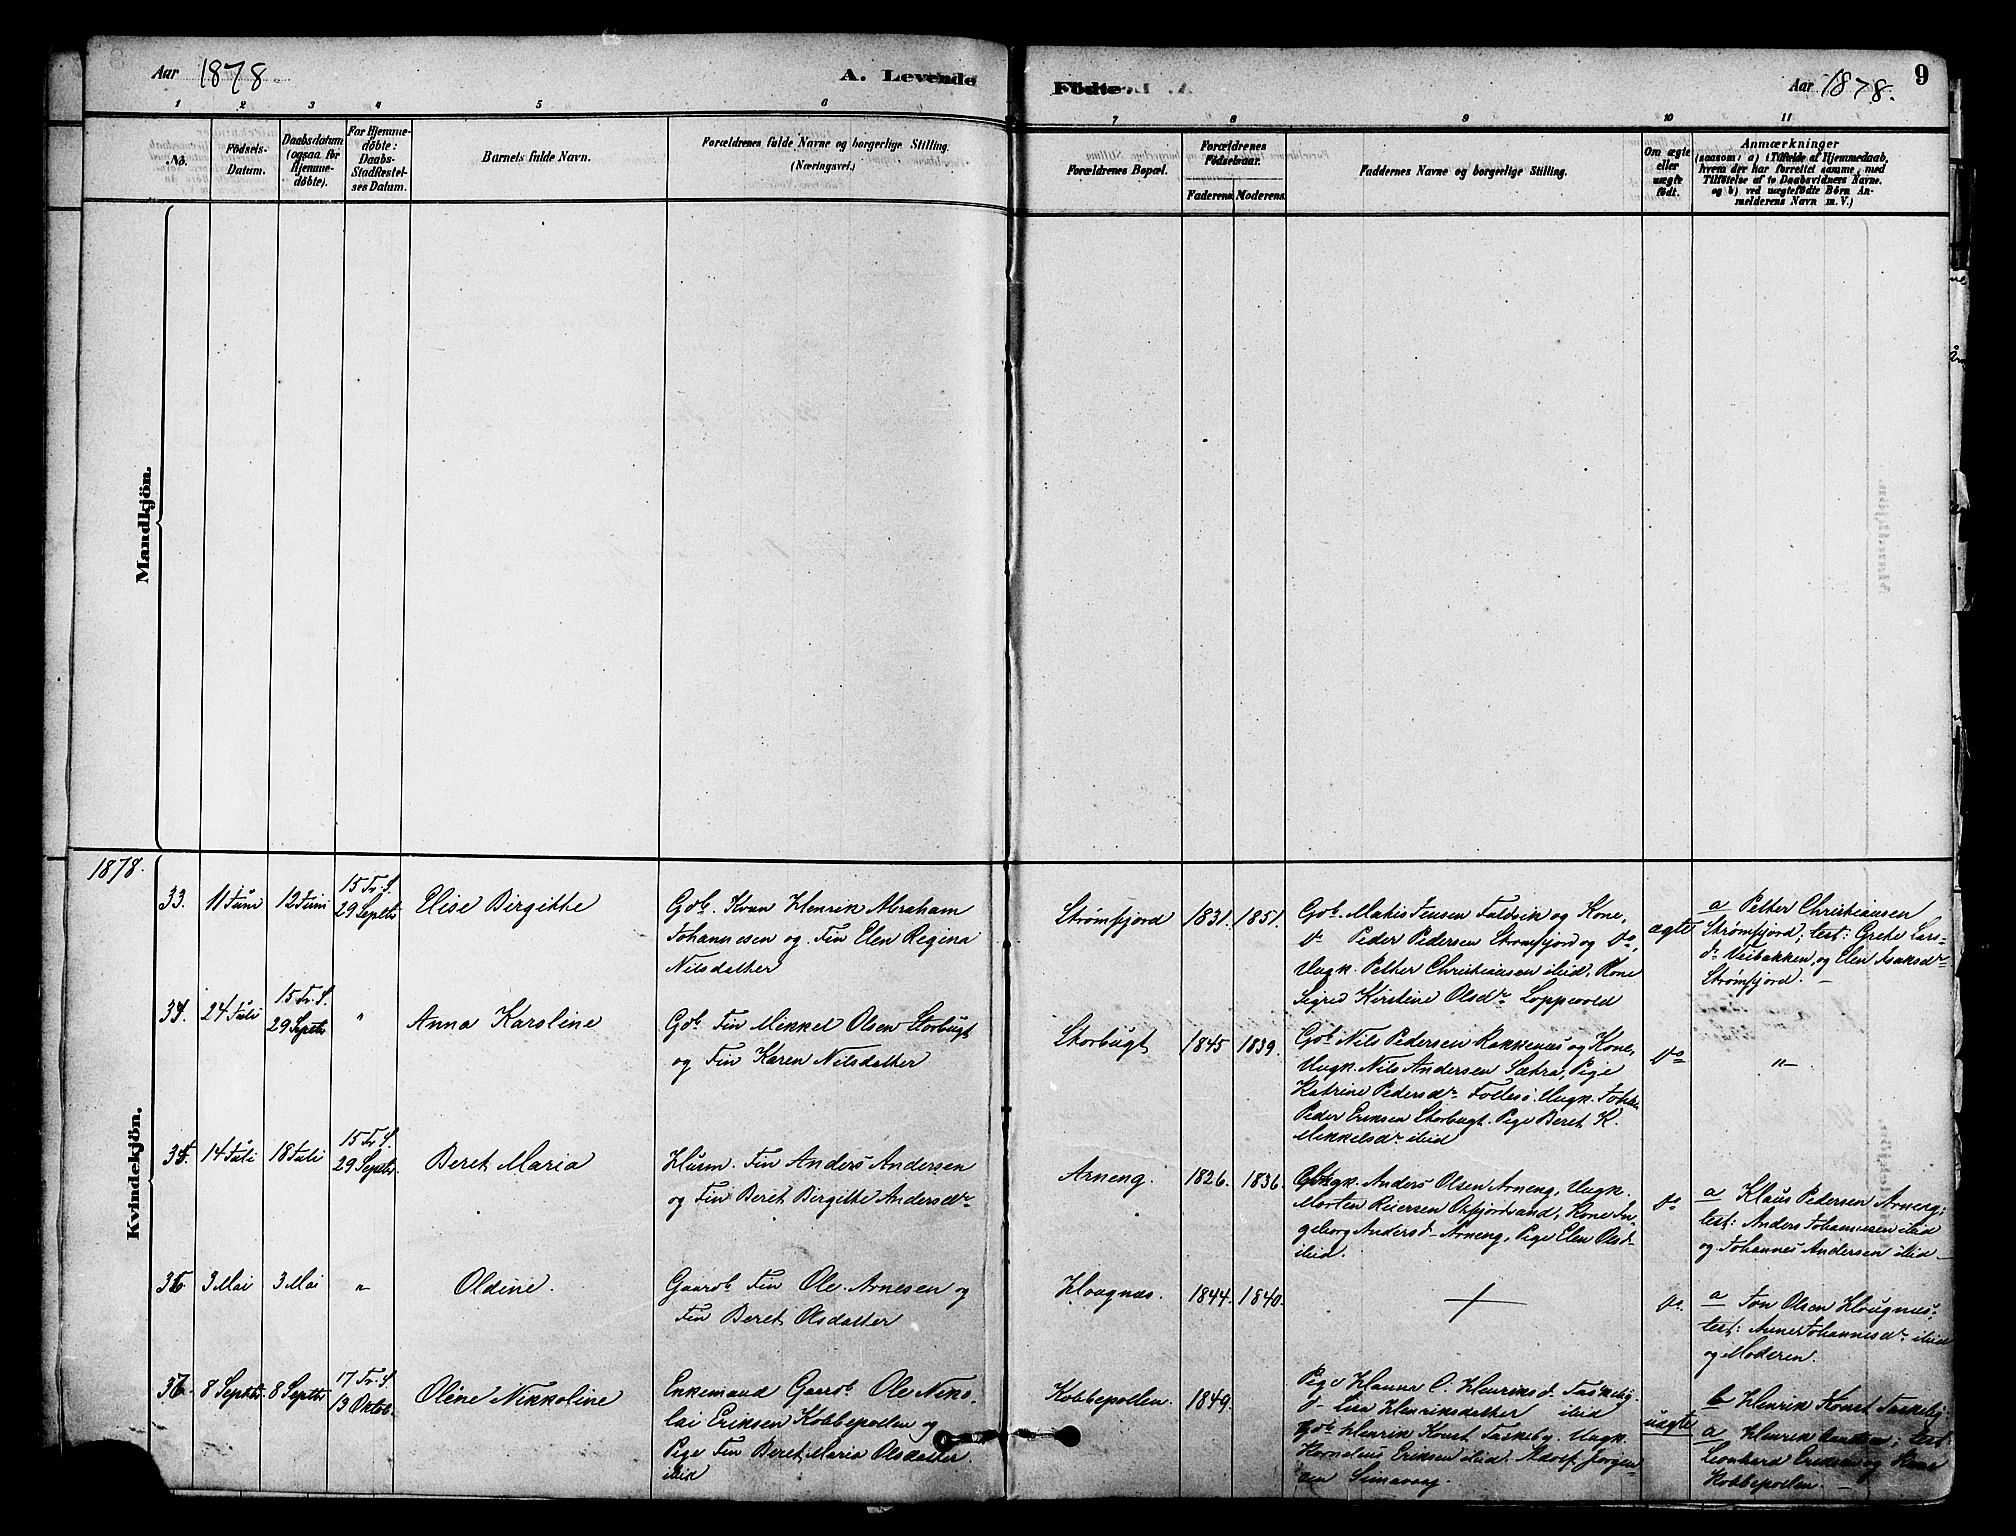 Aar 1878. A. Levende Födte. Aar 1878. 9
1 2 3 4 5 6 7 8 9 10 11
No.
Födsels-
Datum.
Daabsdatum
(ogsaa for
Hjemme-
döbte).
For Hjemme-
döbte:
Daabs-
Stadfæstel-
ses Datum.
Barnets fulde Navn.
Forældrenes fulde Navne og borgerlige Stilling.
(Næringsvei.)
Forældrenes Bopæl.
Forældrenes
Födselsaar.
Faderens. Moderens.
Faddernes Navne og borgerlige Stilling.
Om ægte
eller
uægte
födt.
Anmærkninger
(saasom: a) i Tilfælde af Hjemmedaab,
hvem der har forrettet samme, med
Tilföielse af to Daabsvidners Navne.
og b) ved uægtefödte Börn An-
melderens Navn m. V.)
Mandkjön.
1878.
Kvindekjön.
33.
11 Juni
12 Juni
15 Tr. S.
29 Septb
Elise Birgitte
Gob. Kvan Henrik Abraham
Johannesen og Fin Elen Regina
Nilsdatter
Strømfjord
1831.
1851.
Gob. Mathis Jensen Faldvik og Kone,
do Peder Pedersen Strømfjord og do,
Ungk. Petter Christiansen ibid, Kone
Sigrid Kirstine Olsdr Loppevold
ægte
a Petter Christiansen
Strømfjord; test: Grethe Lars-
dr Veibakken, og Elen Isaksdr
Strømfjord. —
34.
24 Juli
15 Tr. S.
29 Septb
"
Anna Karoline
Gob. Fin Mikkel Olsen Storbugt
og Fin Karen Nilsdatter
Storbugt
1845
1839.
Gob Nils Pedersen Rakkenæs og Kone,
Ungk. Nils Andersen Sætra, Pige
Katrine Pedersdr Follesø. Ungk. Johan
Peder Eriksen Storbugt. Pige Beret K.
Mikkelsdr ibid
do
"
35.
14 Juli
18 Juli
15 Tr. S.
29 Septb.
Beret Maria
Husm. Fin Anders Andersen
og Fin Beret Birgitte Andersdr
Arneng.
1826.
1836.
Ungk. Anders Olsen Arneng, Ungk.
Morten Reiersen Oxfjordsand, Kone In-
geborg Andersd. Arneng, Pige Elen Olsd
ibid.
do
a Klaus Pedersen Arneng;
test: Anders Johannesen ibid
og Johannes Andersen ibid —
36.
3 Mai
3 Mai
"
Oldine.
Gaarb. Fin Ole Arnesen og
Fin Beret Olsdatter
Hougnæs.
1844.
1840.
do.
a Jon Olsen Hougnæs;
test: Anne Johannesdr ibid
og Moderen.
37.
8 Septbr.
8 Septbr
17 Tr. S.
13 Oktob.
Oline Nikkoline
Enkemand Gaarb. Ole Niko-
lai Eriksen Kobbepollen og
Pige Fin Beret Maria Olsdatter
ibid
Kobbepollen.
1849.
Pige Hanna C. Henriksd. Taskeby.
do Lisa Henriksdatter ibid
Gob Henrik Konst Taskeby. Ungk.
Kornelius Eriksen ibid. Adolf Jørgen-
sen Simavaag
uægte
b Henrik Konst Taskeby.
a Henrik; test:
Leonhard Eriksen og Kone
Kobbepollen. —